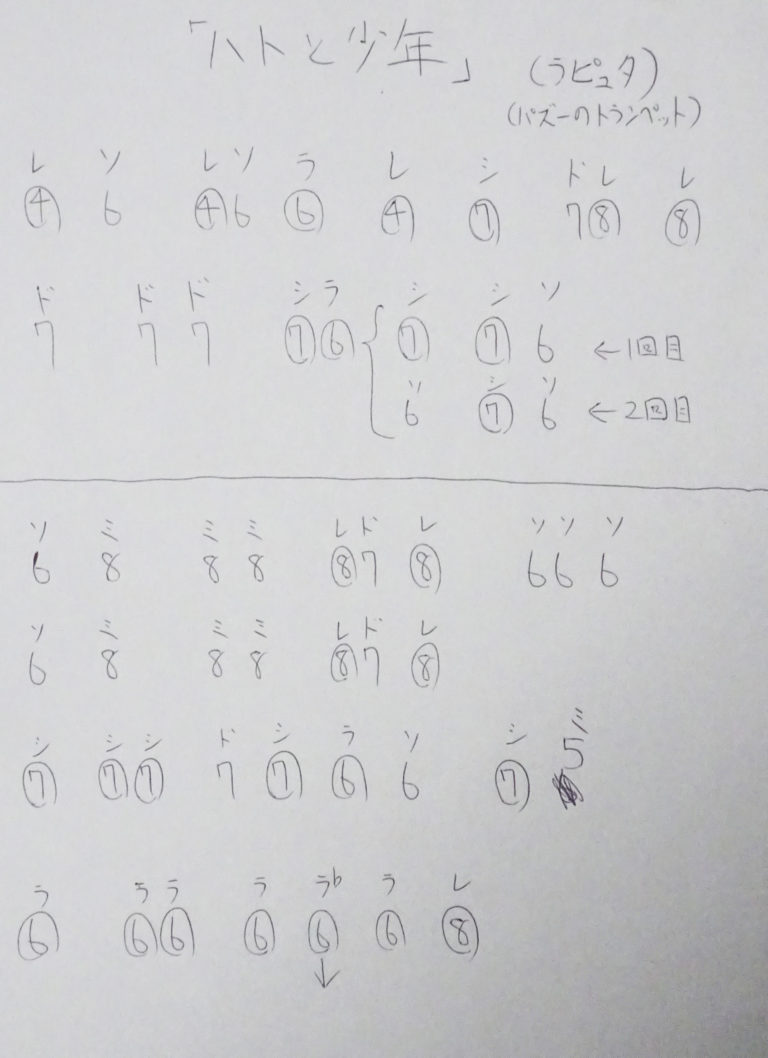 「ハトと少年」 (ラピュタ)
(パズーのトランペット)
レ ソ レソ ラ レ シ ドレ レ
④ 6 ④6 ⑥ ④ ⑦ 7⑧ ⑧
ド ド ド シラ シ シ ソ
7 7 7 ⑦⑥ ⑦ ⑦ 6 ←1回目
ソ シ ソ
6 ⑦ 6 ←2回目
ソ ミ ミ ミ レド レ ソソ ソ
6 8 8 8 ⑧7 ⑧ 66 6
ソ ミ ミ ミ レド レ
6 8 8 8 ⑧7 ⑧
シ シシ ド シ ラ ソ シ ミ
⑦ ⑦⑦ 7 ⑦ ⑥ 6 ⑦ 5
ラ ララ ラ ラ♭ ラ レ
⑥ ⑥⑥ ⑥ ⑥ ⑥ ⑧
↓